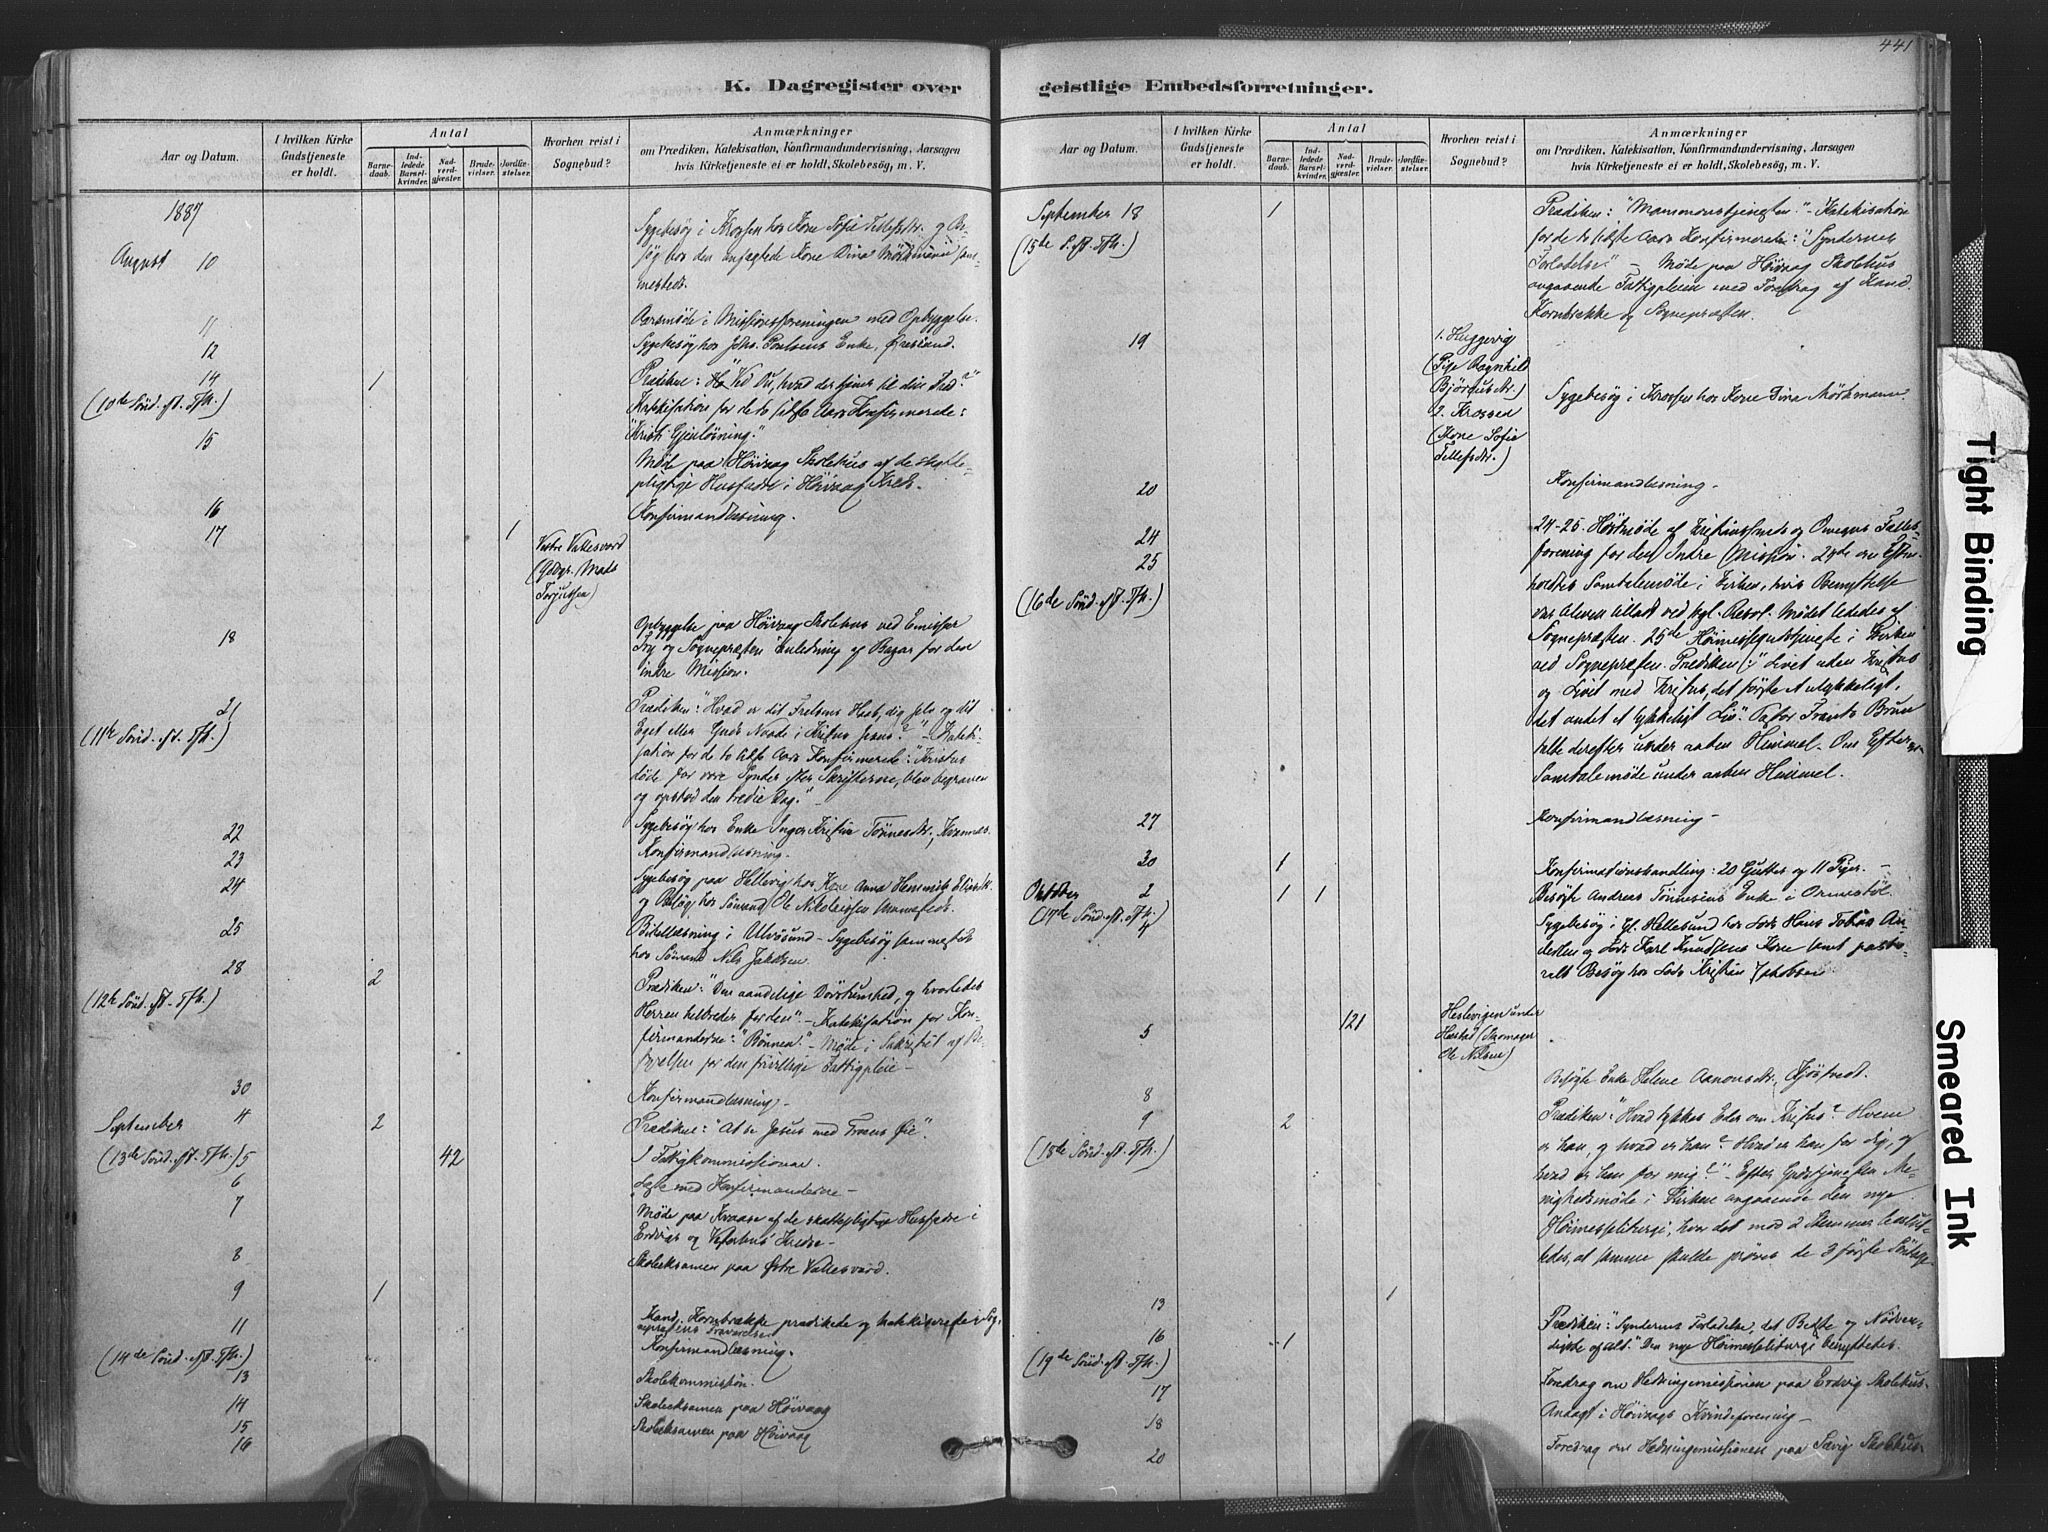 441
K. Dagregister over
geistlige Embedsforretninger.
Aar og Datum.
I hvilken Kirke
Gudstjeneste
er holdt.
Antal
Barne-
daab.
Ind-
ledede
Barsel-
kvinder.
Nad-
verd-
gjæster.
Brude-
vielser.
Jordfæ-
stelser.
Hvorhen reist i
Sognebud?
Anmærkninger
om Prædiken, Katekisation, Konfirmandundervisning, Aarsagen
hvis Kirketjeneste ei er holdt, Skolebesøg, m. V.
1887
August 10
Sygebesøg i Krossen hos Kone Sofie Tellefsdtr. og Be-
søg hos den anfægtede Kone Dina Mörkmann sam-
mesteds.
11
Aarsmøde i Missionsforeningen med Opbyggelse.
12
Sygebesøg hos Johs. Poulsens Enke, Øresland.
14
(10de Sönd. eft. Tfh.)
1
Prædiken: "Ved Du, hvad der tjener til din Fred?"
Katekisation for de to sidste Aars Konfirmerede:
"Kristi Gjenløsning."
15
Møde paa Høivaag Skolehus af de skatte-
pligtige Husfædre i Høivaag Kreds.
16
Konfirmandlæsning.
17
1
Vestre Vallesværd
(Gdbgr. Mads
Torjussen)
18
Opbyggelse paa Høivaag Skolehus ved Emissær
Try og Sognepræsten i Anledning af Bazar for den
indre Mission.
21
(11te Sönd. eft. Tfh.)
Prædiken: "Hvad er dit Frelsens Haab, dig selv og dit
Eget eller Guds Naade i Kristus Jesus?" - Kateki-
sation for de to sidste Aars Konfirmerede: "Kristus
døde for vore Synder efter Skrifterne, blev begraven
og opstod den tredie Dag." -
22
Sygebesøg hos Enke Inger Kristine Tönnesdtr.,
23
Konfirmandlæsning.
24
Sygebesøg paa Hellevig hos Kone Anna
og Besøg hos Sömand Ole Nikolaissen sammesteds.
25
Bibellæsning i Ulvösund - Sygebesøg sammesteds
hos Sömand Nils Jakobsen.
28
(12te Sönd. eft. Tfh.)
2
Prædiken: "Den aandelige Døvstumhed, og hvorledes
Herren helbreder for den" - Katekisation for Kon-
firmanderne: "Bönnen." - Møde i Sakristiet af Be-
styrelsen for den frivillige Fattigpleie -
30
Konfirmandlæsning -
September 4
2
Prædiken: "At se Jesus med Troens Øie".
(13de Sönd. eft. Tfh.) 5
42
I Fattigkommissionen.
6
Læste med Konfirmanderne -
7
Møde paa Kvaase af de skattepligtige Husfædre i
Eidvigs og Vesterhus Kredse -
8
Skoleeksamen paa Østre Vallesværd.
9
1
11
(14de Sönd. eft. Tfh.)
Kand. Kornbrække prædikede og katekiserede i Sog-
nepræstens Fraværelse
Konfirmandlæsning.
13
Skolekommission.
14
Skoleeksamen paa Höivaag
15
Skoleeksamen paa Höivaag
16
Aar og Datum.
I hvilken Kirke
Gudstjeneste
er holdt.
Antal
Barne-
daab.
Ind-
ledede
Barsel-
kvinder.
Nad-
verd-
gjæster.
Brude-
vielser.
Jordfæ-
stelser.
Hvorhen reist i
Sognebud?
Anmærkninger
om Prædiken, Katekisation, Konfirmandundervisning, Aarsagen
hvis Kirketjeneste ei er holdt, Skolebesøg, m. V.
September 18
(15de S. eft. Tfh.)
1
Prædiken: "Mammonstjenesten." - Katekisation
for de to sidste Aars Konfirmerede: "Syndernes
Forladelse." - Møde paa Høivaag Skolehus
angaaende Fattigpleien med Foredrag af Kand.
Kornbrække og Sognepræsten.
19
1. Huggevig
(Pige Ragnhild
Bjørnsdtr.)
2. Krossen
(Kone Sofie
Tellefsdtr.)
Sygebesøg i Krossen hos Kone Dina Mörkmann.
20
Konfirmandlæsning -
24
25
(16de Sönd. eft. Tfh.)
24-25. Høstmøde af Kristianssands og Omegns Fælles-
forening for den Indre Mission. 24de om Efterm.
holdtes Samtalemøde i Kirken, hvis Benyttelse
var bleven tilladt ved kgl. Resol. Mødet lededes af
Sognepræsten. 25de Høimessegudstjeneste i Kirken
ved Sognepræsten. Prædiken: "Livet uden Kristus
og Livet med Kristus, det første et ulykkeligt,
det andet et lykkeligt Liv". Pastor Frants Bruun
talte derefter under aaben Himmel. Om Efterm.
Samtalemøde under aaben Himmel.
27
Konfirmandlæsning -
30
1
Konfirmationshandling: 20 Gutter og 11 Piger -
Oktober 2
(17de Sönd. eft. Tfh.)
1
1
Besøgte Andreas Tönnesens Enke i Ormestöl
4
Sygebesøg i Gl. Hellesund hos Lods Hans Tobias An-
dersen og Lods Karl Knudsens Kone samt pasto-
ralt Besøg hos Lods Kristian Jakobsen
5
121
Heslevigen under
Hæstad (Skomager
Ole Nilsen)
8
Besøgte Enke Helene Aanonsdtr.,
9
(18de Sönd. eft. Tfh.)
2
Prædiken: "Hvad tykkes Eder om Kristus? Hvem
er han, og hvad er han? Hvad er han for dig, og
hvad er han for mig?" - Efter Gudstjenesten Me-
nighedsmøde i Kirken angaaende den nye
Høimesseliturgi, hvor det med 2 Stemmer beslut-
tedes, at samme skulde prøves de 3 første Söndage
13
1
16
(19de Sönd. eft. Tfh.)
1
Prædiken: "Syndernes Forladelse, det Bedste og Nødven-
digste af alt." Den nye Höimesseliturgi benyttedes.
17
Foredrag om Hedningemissionen paa Eidvig Skolehus.
18
Andagt i Höivaags Kvindeforening -
20
Foredrag om Hedningemissionen paa Sævig Skolehus.
Tight Binding
Smeared Ink